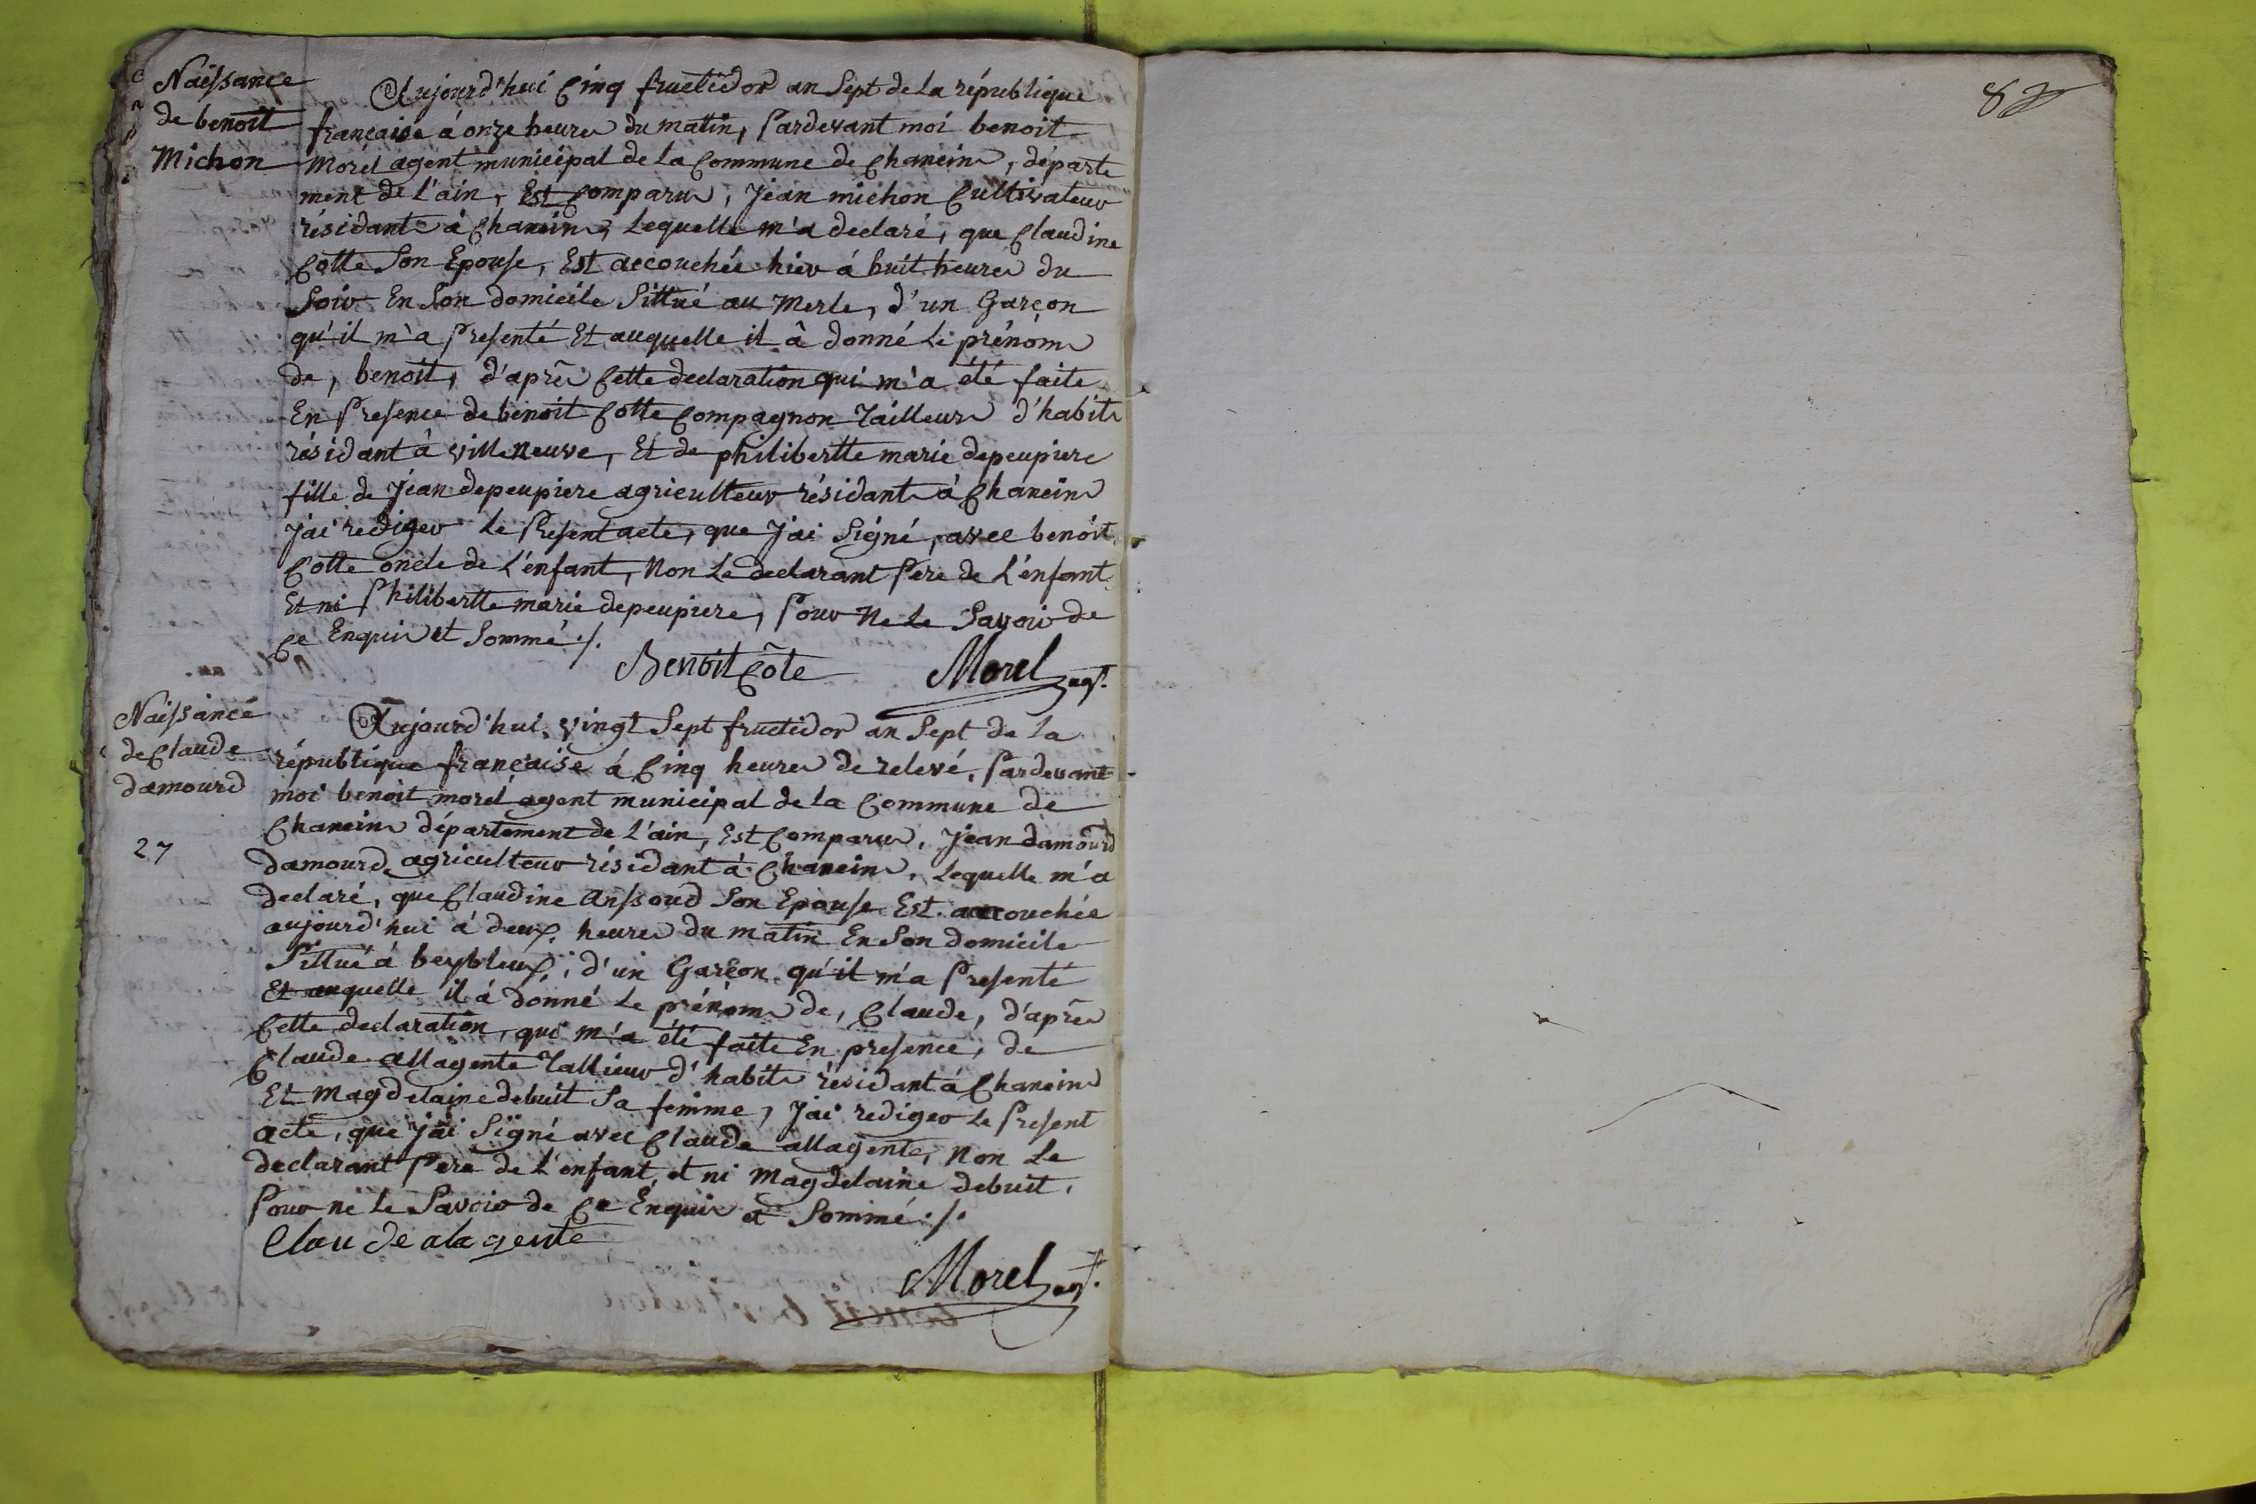 Naissance
de benoit
Michon
Aujourd'hui Cinq fructidor an Sept de La république
francaise à onze heures du matin, Pardevant moi benoit
Morel agent municipal de la Commune de Chaneins, départe
ment de L'ain, Est Comparus, Jean michon Cultivateur
résidant à Chaneins, Lequelle m'a declaré, que Claudine
Cotte Son Epouse, Est accouchée hier à huit heures du
Soir En Son domicile Sittué au Merle, d'un Garçon
qu'il m'a Presenté Et auquelle il â donné Le prénoms
de, benoit, d'après Cette declaration qui m'a été faite
En Presence de benoit Cotte Compagnon Tailleurs d'habits
résidant à villeneuve, Et de philibertte marie depeupiere
fille de Jean depeupiere agriculteur résidant à Chaneins
J'ai rediger Le Present acte, que J'ai Signé, avec benoit
Cotte oncle de L'enfant, Non Le declarant Pere de L'enfant
Et ni Philibertte marie depeupiere, Pour Ne Le Savoir de
Ce Enquis et Sommé ./.
Benoit Côte
Morel ag.
Naissance
de Claude
damourd
27
Aujourd'hui vingt Sept fructidor an Sept de La
république française à Cinq heures de relevé, Pardevant
moi benoit morel agent municipal de la Commune de
Chaneins département de L'ain, Est Comparus, Jean damourd
damourd agriculteur résidant à Chaneins, Lequelle m'a
declaré, que Claudine Anssoud Son Epouse Est accouchée
aujourd'hui à deux heures du matin En Son domicile
Sittué à beybleux, d'un Garçon qu'il m'a Presenté
Et auquelle il à donné Le prénoms de, Claude, d'après
Cette declaration, qui m'a été faite En presence, de
Claude allagente Tallieur d'habits résidant à Chaneins
Et Magdelaine debuit Sa femme, J'ai rediger Le Present
acte, que J'ai Signé avec Claude allagente, Non Le
declarant Pere de L'enfant, et ni Magdelaine debuit,
Pour ne Le Savoir de Ce Enquis et Sommé ./.
Claude alagente
Morel ag.
82